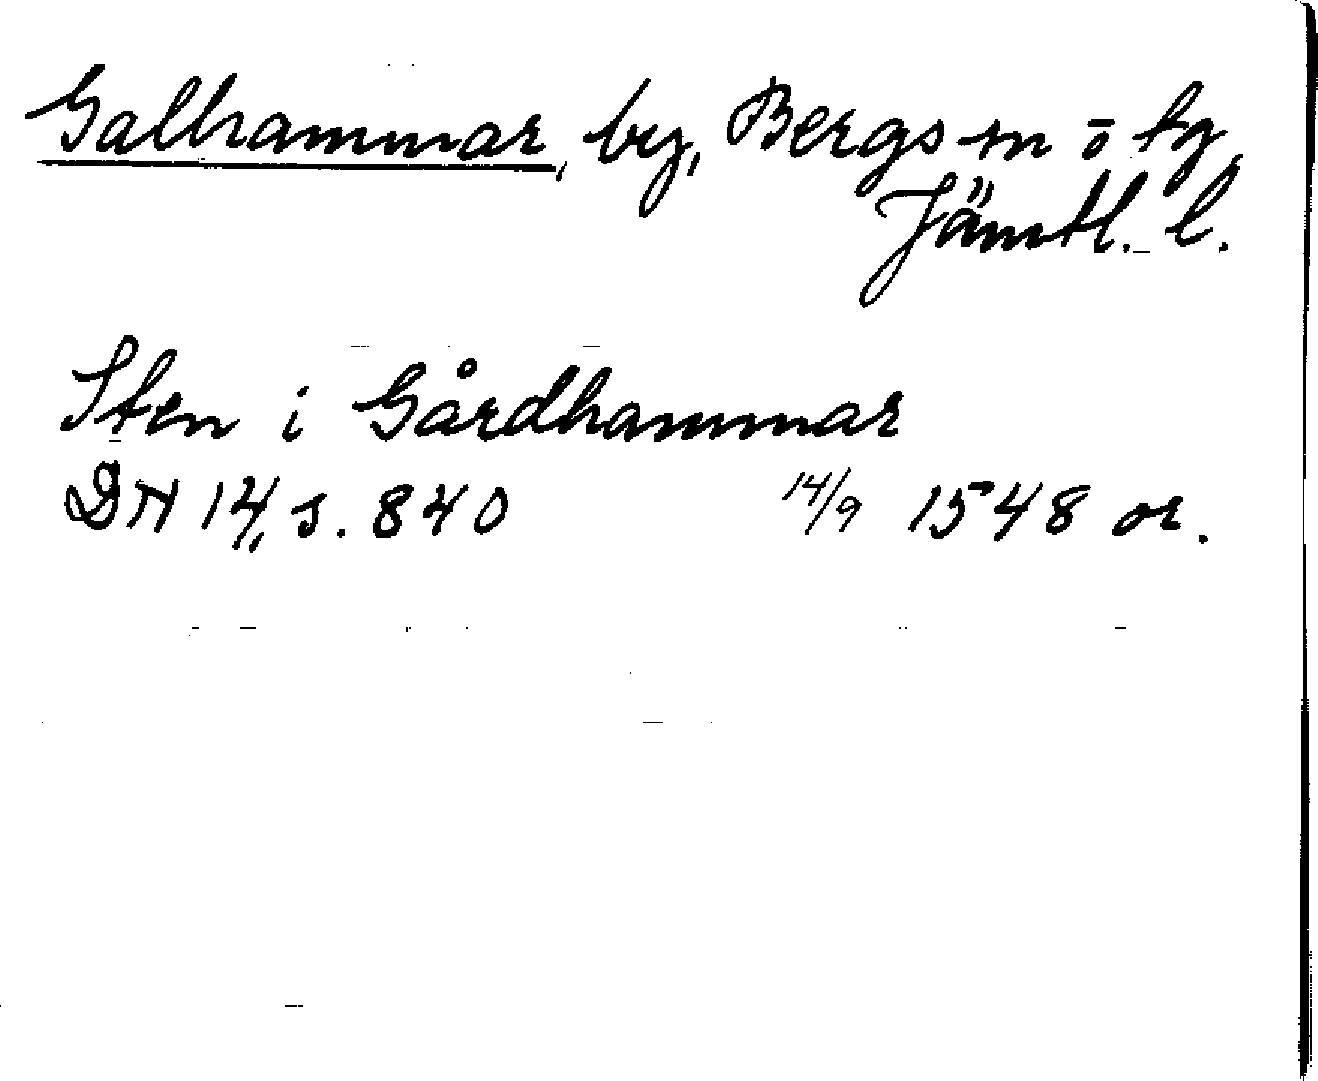 Galhammar, by, Bergs sn o tg,
Jämtl. l.
Sten i Gårdhammar
DN 14, s. 840 14/9 1548 or.